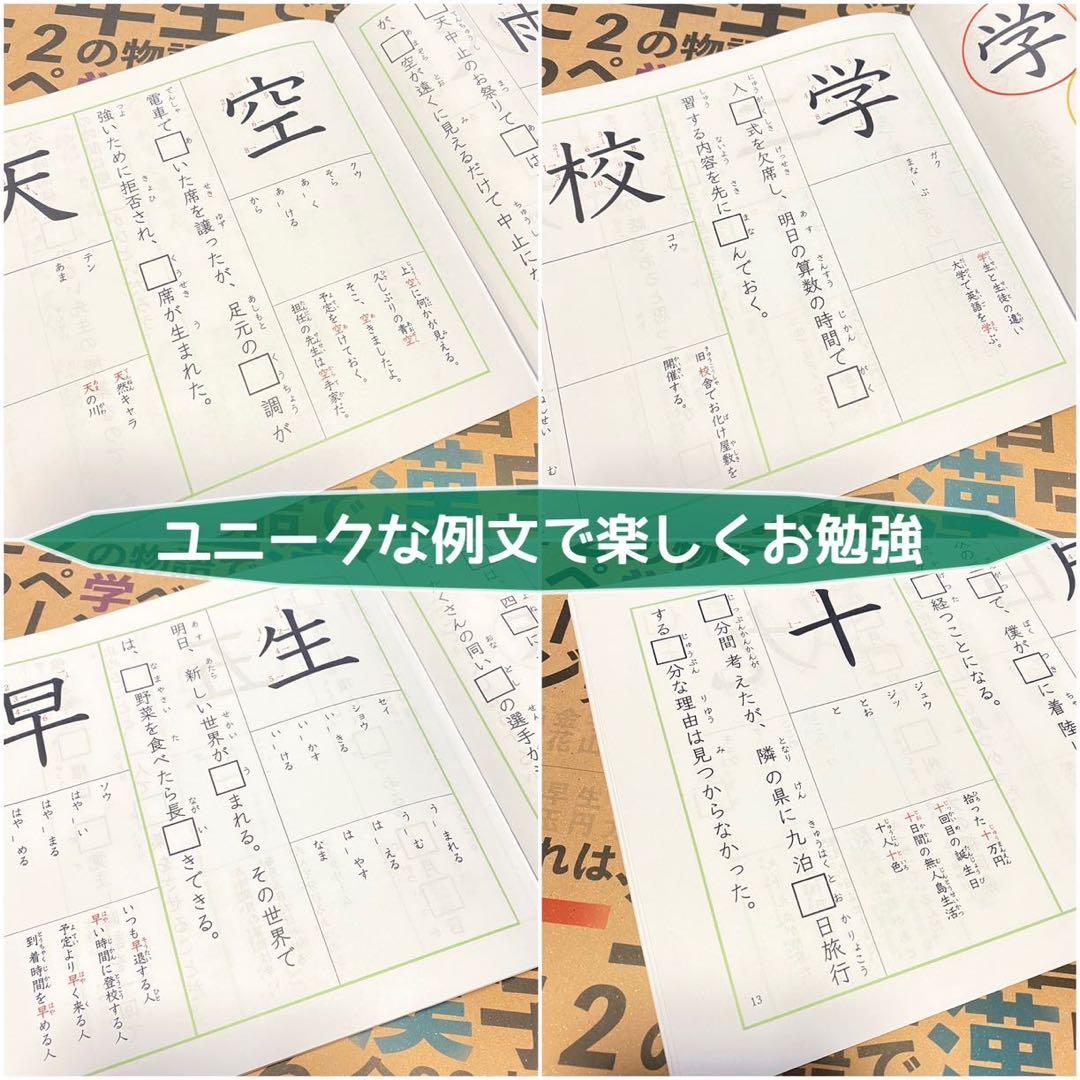 ユニークな例文で楽しくお勉強
空
クウ
そら
あーく
あーける
から
上空に何かが見える。
久しぶりの青空
そこ、空きましたよ。
予定を空けておく。
担任の先生は空手家だ。
電車で□いた席を譲ったが、足元の□調が
強いために拒否され、□席が生まれた。
天
テン
あま
天然キャラ
天の川
□天中止のお祭りで□は
が、□空が遠くに見えるだけで中止にな
雨
学
学
ガク
まなーぶ
学生と生徒の違い
大学で英語を学ぶ。
入□式を欠席し、明日の算数の時間で□
習する内容を先に□んでおく。
校
コウ
旧校舎でお化け屋敷を
開催する。
生
セイ
ショウ
いーきる
いーかす
いーける
うーまれる
うーむ
はーえる
はーやす
なま
明日、新しい世界が□まれる。その世界で
は、□野菜を食べたら長□きできる。
早
ソウ
はやーい
はやーまる
はやーめる
いつも早退する人
早い時間に登校する人
予定より早く来る人
到着時間を早める人
たくさんの同い□の選手が
十
ジュウ
ジッ
とお
と
拾った十万円
十回目の誕生日
十日間の無人島生活
十人十色
□分間考えたが、隣の県に九泊□日旅行
する□分な理由は見つからなかった。
て、僕が□に着陸
経つことになる。
13